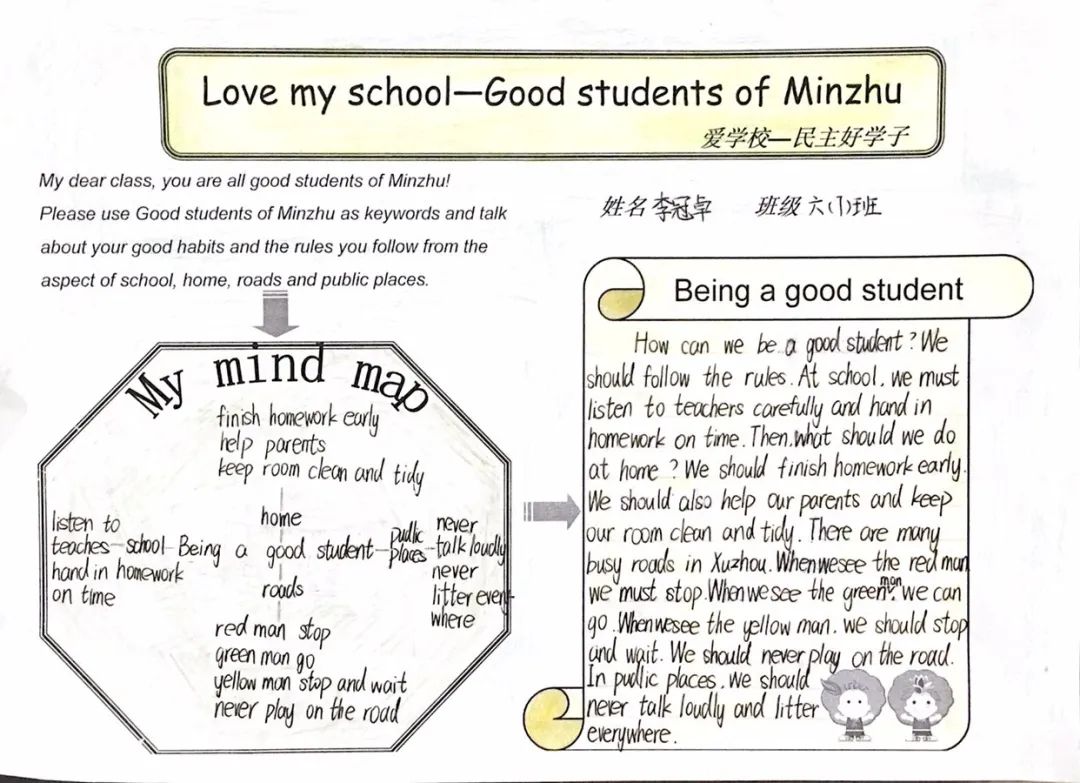 Love my school—Good students of Minzhu
爱学校—民主好学子
My dear class, you are all good students of Minzhu!
Please use Good students of Minzhu as keywords and talk
about your good habits and the rules you follow from the
aspect of school, home, roads and public places.
姓名 李冠卓 班级 六(1)班
My mind map
finish homework early
help parents
keep room clean and tidy
home
listen to
teaches school Being a good student pudlc places
hand in homework
on time
never
talk loudly
never
litter every-
where
roads
red man stop
green man go
yellow man stop and wait
never play on the road
Being a good student
How can we be a good student? We
should follow the rules. At school, we must
listen to teachers carefully and hand in
homework on time. Then, what should we do
at home? We should finish homework early.
We should also help our parents and keep
our room clean and tidy. There are many
busy roads in Xuzhou. When we see the red man
we must stop. When we see the green man, we can
go. When we see the yellow man, we should stop
and wait. We should never play on the road.
In pudlic places, we should
never talk loudly and litter
everywhere.